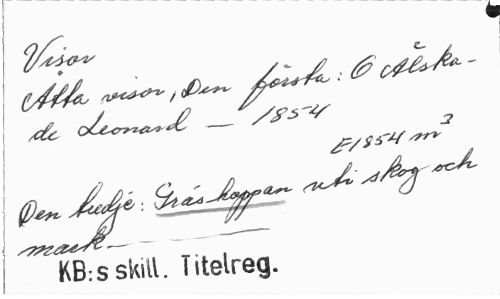 Visor
Åtta visor, Den första: O Älska-
de Leonard — 1854
E1854 m³
Den tredje: Gräshoppan uti skog och
mark —
KB:s skill. Titelreg.